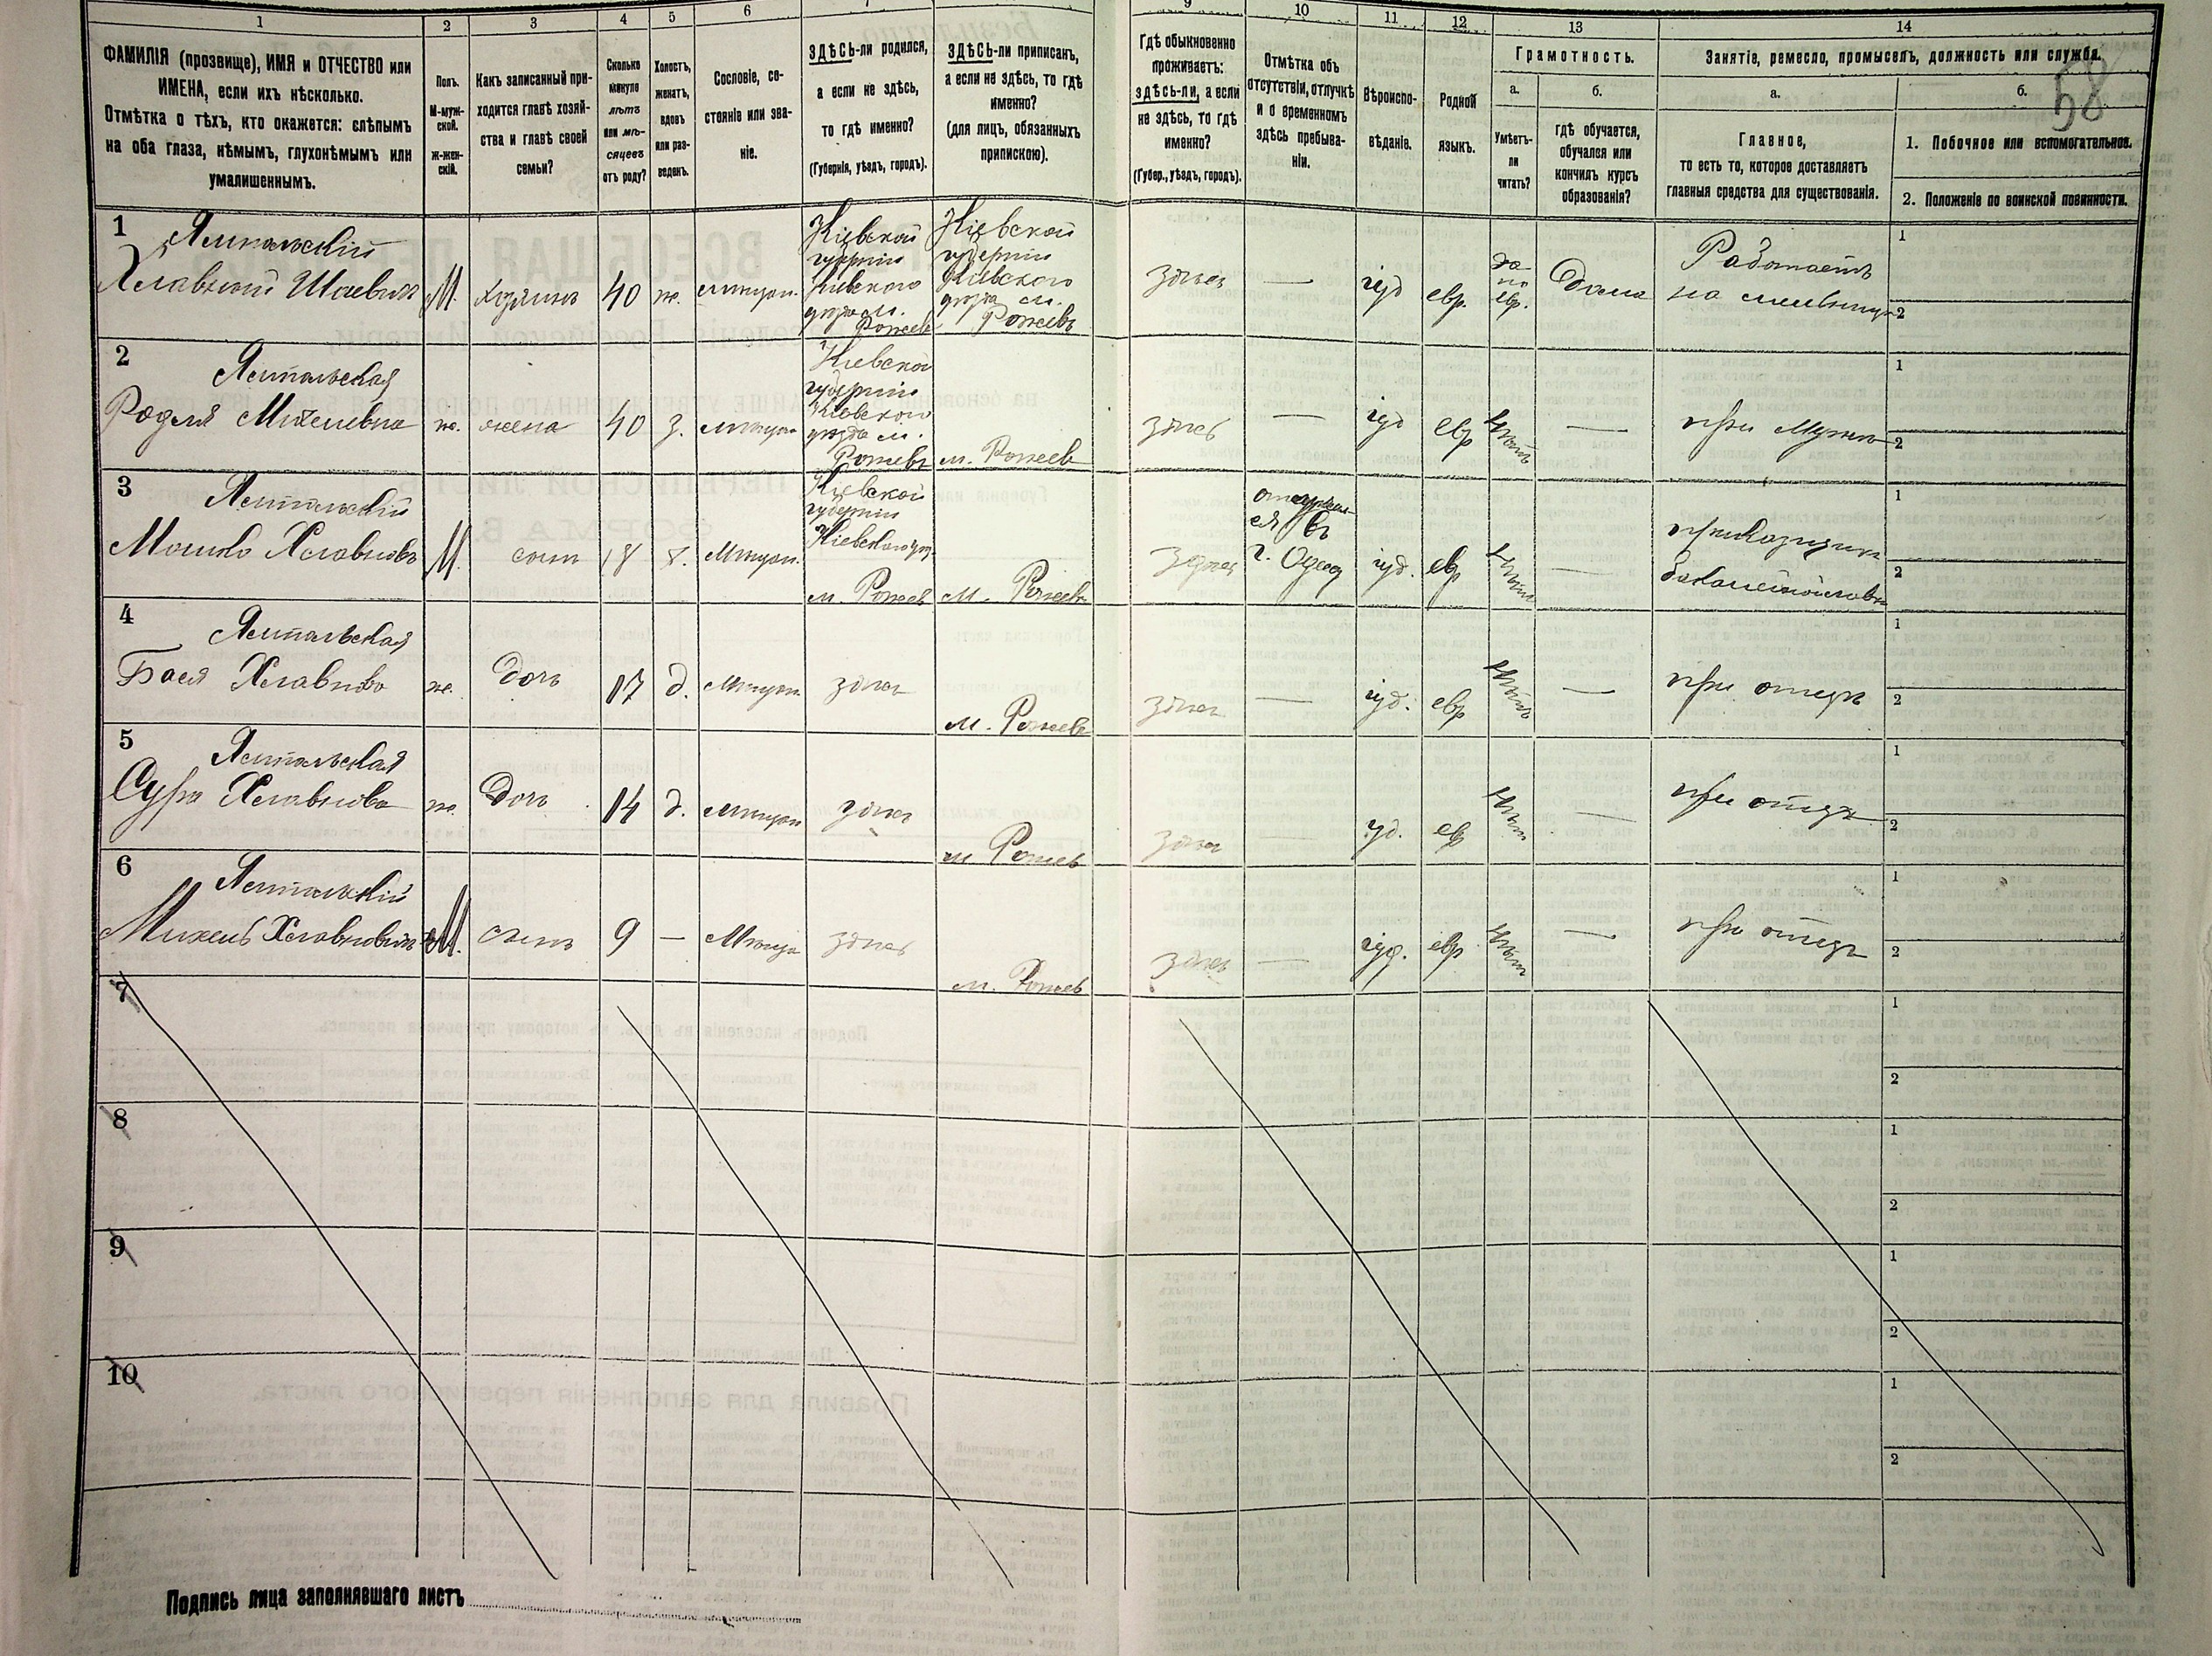 1
2
3
4
5
6
7
9
10
11
12
13
14
ФАМИЛІЯ (прозвище), ИМЯ и ОТЧЕСТВО или
ИМЕНА, если ихъ нѣсколько.
Отмѣтка о тѣхъ, кто окажется: слѣпымъ
на оба глаза, нѣмымъ, глухонѣмымъ или
умалишеннымъ.
Полъ.
М-муж-
ской.
Ж-жен-
скій.
Какъ записанный при-
ходится главѣ хозяй-
ства и главѣ своей
семьи?
Сколько
минуло
лѣтъ
или мѣ-
сяцевъ
отъ роду?
Холостъ,
женатъ,
вдовъ
или раз-
веденъ.
Сословіе, со-
стояніе или зва-
ніе.
ЗДѢСЬ-ли родился,
а если не здѣсь,
то гдѣ именно?
(Губернія, уѣздъ, городъ).
ЗДѢСЬ-ли приписанъ,
а если не здѣсь, то гдѣ
именно?
(для лицъ, обязанныхъ
припискою).
Гдѣ обыкновенно
проживаетъ:
здѣсь-ли, а если
не здѣсь, то гдѣ
именно?
(Губер., уѣздъ, городъ).
Отмѣтка объ
отсутствіи, отлучкѣ
и о временномъ
здѣсь пребыва-
ніи.
Вѣроиспо-
вѣданіе.
Родной
языкъ.
Грамотность.
а.
Умѣетъ-
ли
читать?
б.
гдѣ обучается,
обучался или
кончилъ курсъ
образованія?
Занятіе, ремесло, промыселъ, должность или служба.
58
а.
Главное,
то есть то, которое доставляетъ
главныя средства для существованія.
б.
1. Побочное или вспомогательное.
2. Положеніе по воинской повинности.
1
Хлавной Шаевич
М.
хозяинъ
40
ж.
мѣщан.
Кіевской
губерніи
Кіевского
уѣзда м.
Рожевъ
Кіевской
губерніи
Кіевского
уѣзда м.
Рожевъ
здѣсь
—
іуд
евр.
да
по
евр.
дома
Работаетъ
на
1
2
2
Михелевна
ж.
жена
40
з.
мѣщан
Кіевской
губерніи
Кіевского
уѣзда м.
Рожевъ
м. Рожевъ
здѣсь
—
іуд
евр
нѣтъ
—
при мужѣ
1
2
3
Мошко
М.
сынъ
18
х.
Мѣщан.
Кіевской
губерніи
Кіевского у
м. Рожев
м. Рожевъ
здѣсь
въ
г. Одес
іуд.
евр
нѣтъ
—
прикащикъ
1
2
4
Бася
ж.
дочь
17
д.
Мѣщан
здѣсь
м. Рожевъ
здѣсь
—
іуд.
евр
нѣтъ
—
при отцѣ
1
2
5
Сура
ж.
дочь
14
д.
Мѣщан
здѣсь
м Рожев
здѣсь
—
іуд.
евр
нѣтъ
—
при отцѣ
1
2
6
Михель
М.
сынъ
9
—
Мѣща
здѣсь
м. Рожев
здѣсь
—
іуд.
евр
нѣтъ
—
при отцѣ
1
2
7
1
2
8
1
2
9
1
2
10
1
2
Подпись лица заполнявшаго листъ